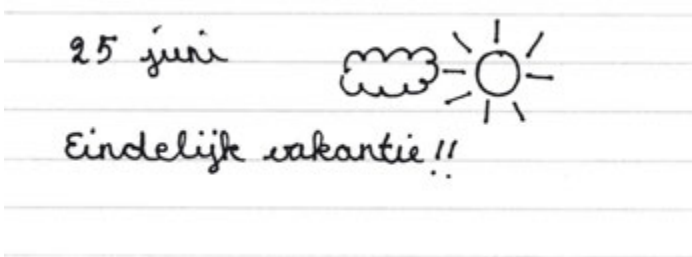 25 juni
Eindelijk vakantie!!